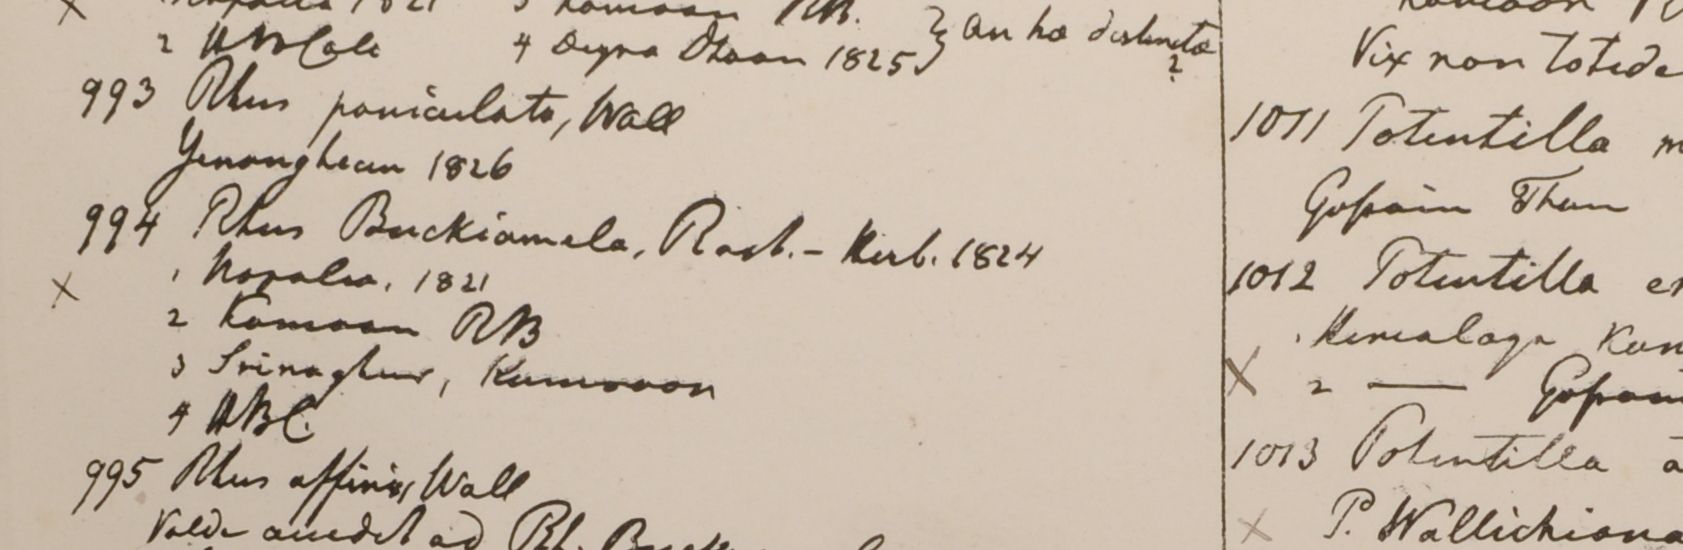 2 HBCalc 4 Deyra Dhoon 1825 } an hae distinctae ?
993 Rhus paniculata, Wall
Yenangheun 1826
994 Rhus Buckiamela, Roxb. - Herb. 1824
1 Napalia. 1821
2 Kamaon RB
3 Srinaghur, Kumaoon
4 HBC.
995 Rhus affinis, Wall
Valde accedit ad Rh.
Vix non
1011 Potentilla
Gossain Than
1012 Potentilla
2 —— Gossain
1013 Potentilla
P. Wallichiana